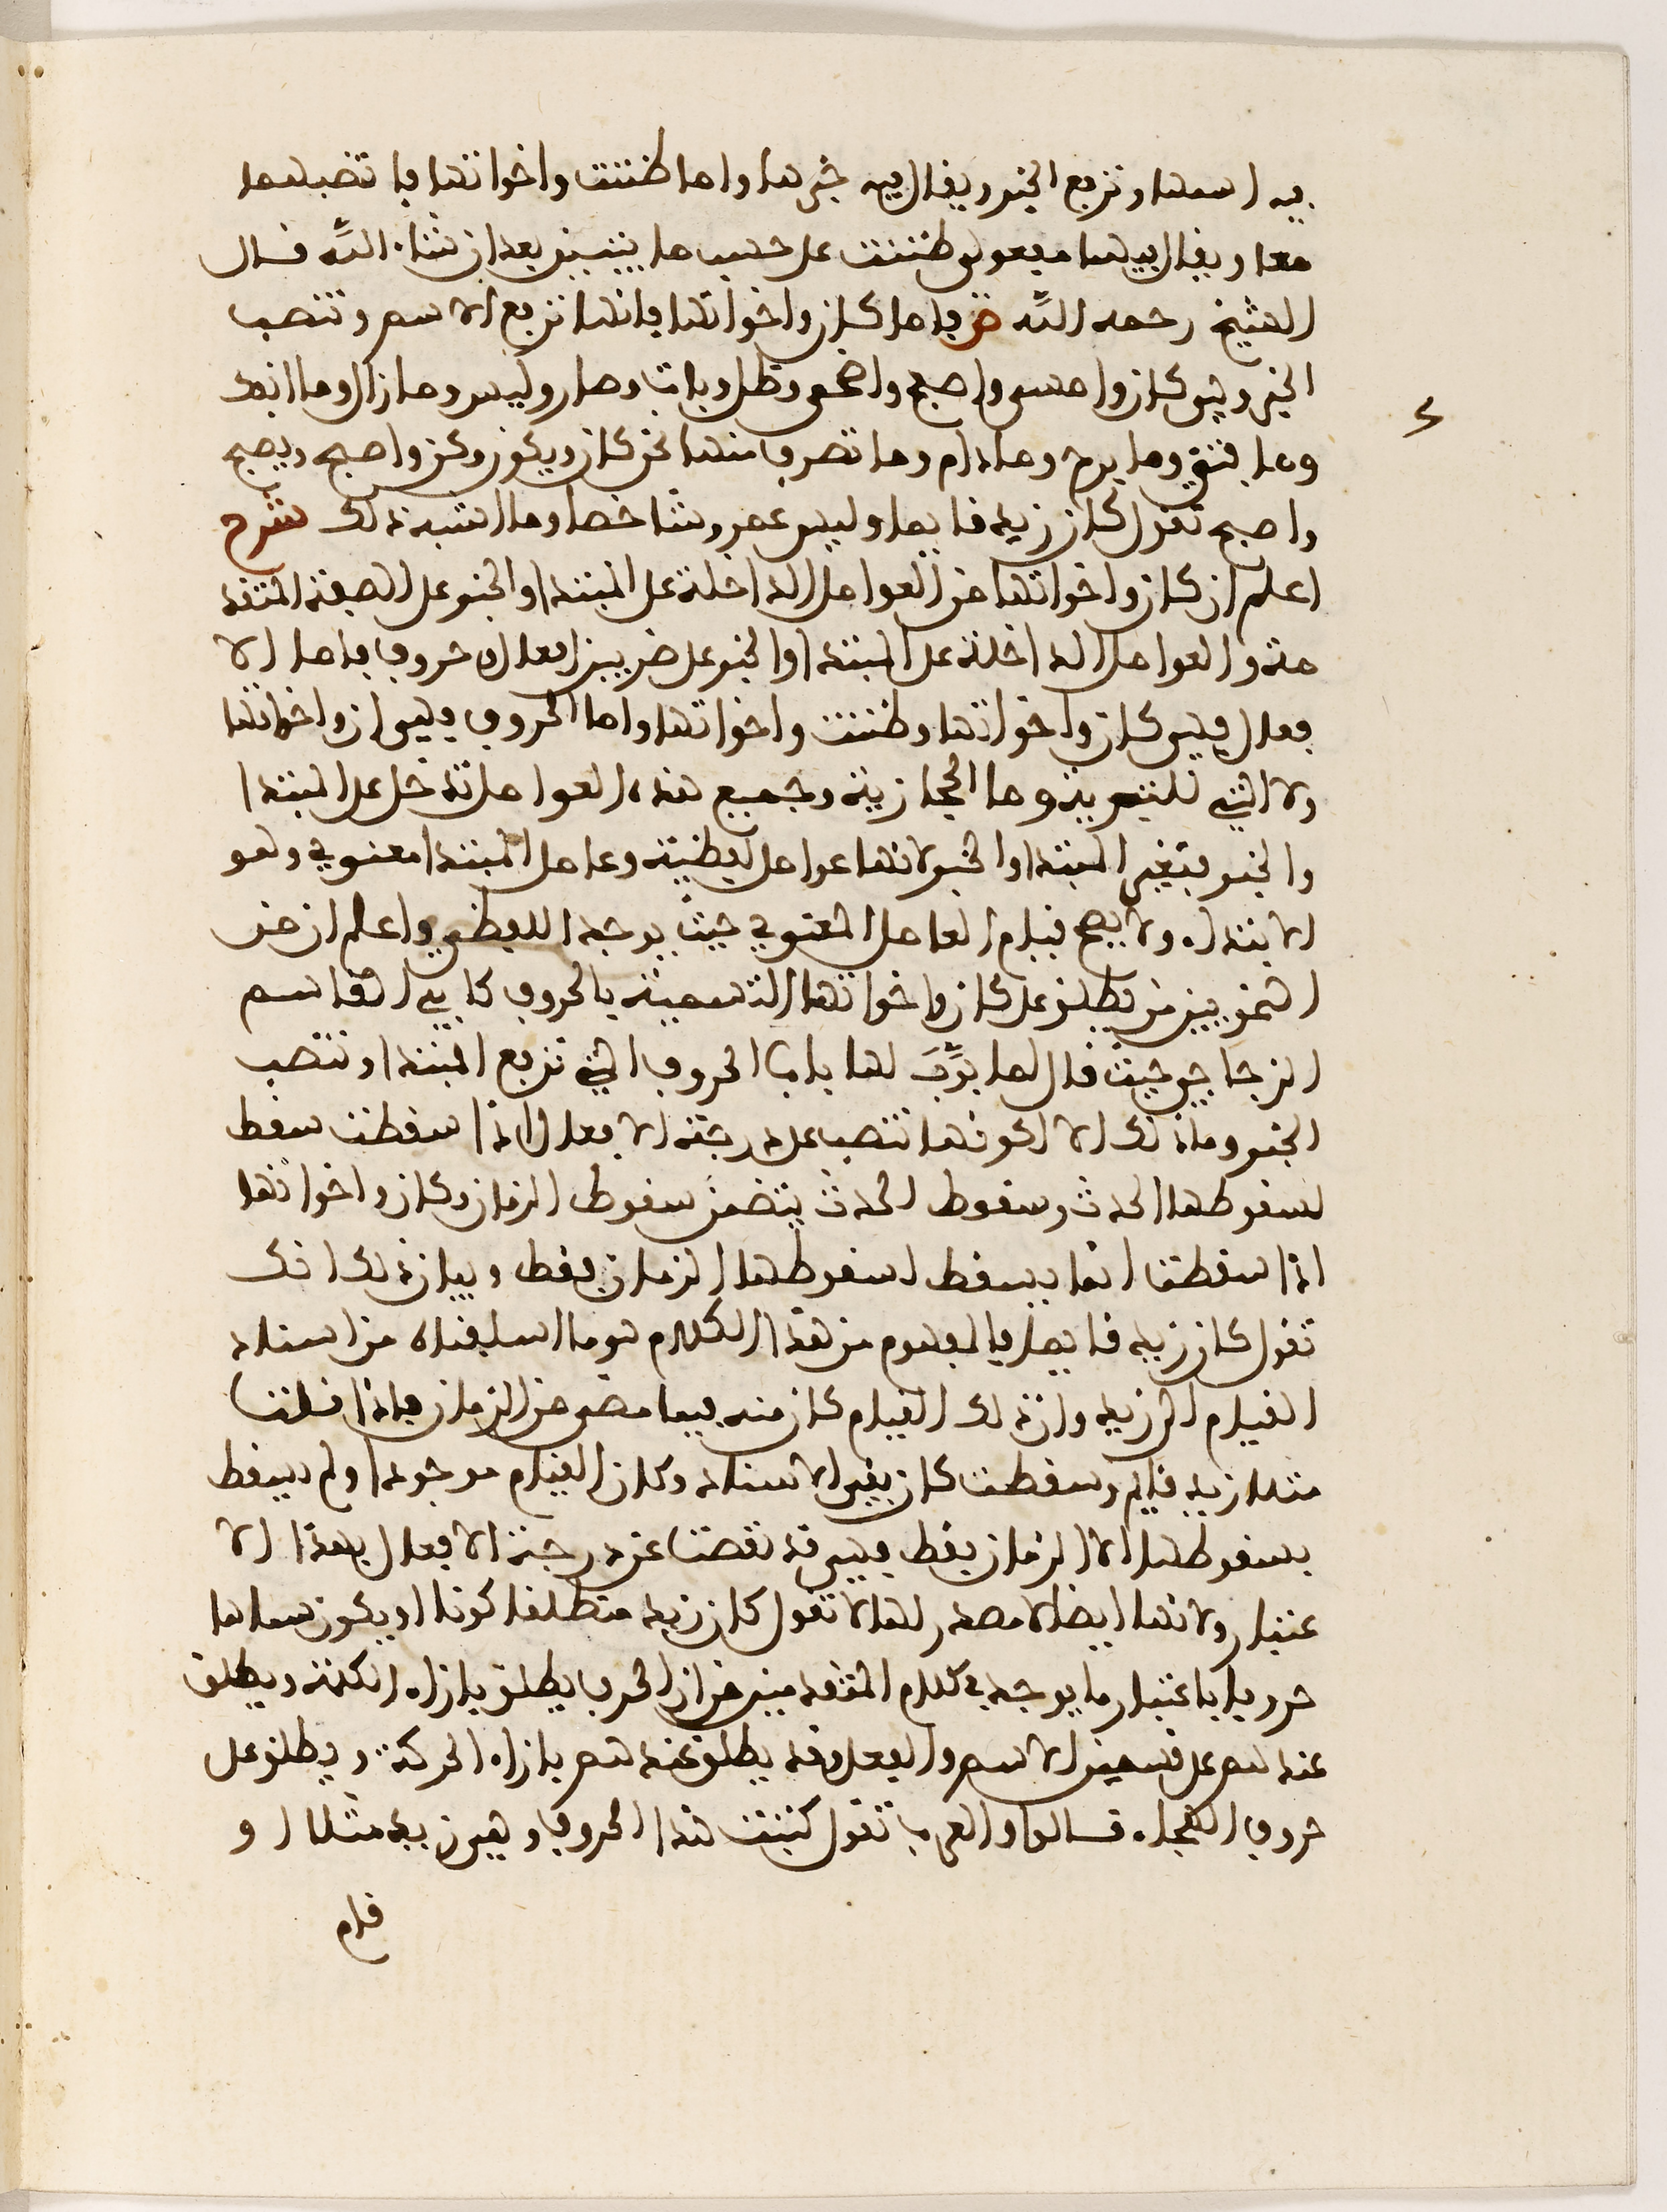 فيه اسمها وترفع الخبر ويقال فيه خبرها واما ظننت واخواتها فانها تنصبهما
معا ويقال فيهما مفعولي ظننت على حسب ما يتبين بعد ان شاء الله قال
الشيخ رحمه الله ص فاما كان واخواتها فانها ترفع الاسم وتنصب
الخبر وهي كان وامسى واصبح واضحى وظل وبات وصار وليس وما زال وما انفك
وما فتئ وما برح وما دام وما تصرف منها نحو كان ويكون وكن واصبح ويصبح
واصبح تقول كان زيد قايما وليس عمرو شاخصا وما اشبه ذلك شرح
اعلم ان كان واخواتها من العوامل الداخلة على المبتدا والخبر على الصفة المتقد
مة والعوامل الداخلة على المبتدا والخبر على ضربين افعال وحروف فاما الا
فعال فهي كان واخواتها وظننت واخواتها واما الحروف فهي ان واخواتها
ولا التي للتبرية وما الحجازية وجميع هذه العوامل تدخل على المبتدا
والخبر فتغير المبتدا والخبر لانها عوامل لفظية وعامل المبتدا معنوي وهو
الابتداء ولا يصح قيام العامل المعنوي حيث يوجد اللفظي واعلم ان من
النحويين من يطلق على كان واخواتها التسمية بالحروف كابي القاسم
الزجاجي حيث قال لما بوب لها باب الحروف التي ترفع المبتدا وتنصب
الخبر وما ذلك الا لكونها تنصب عن درجة الافعال اذا سقطت سقط
لسقوطها الحدث وسقوط الحدث يتضمن سقوط الزمان وكان واخواتها
اذا سقطت انما يسقط لسقوطها الزمان فقط وبيان ذلك انك
تقول كان زيد قايما فالمفهوم من هذا الكلام هو ما اسلفناه من اسناد
القيام الى زيد وان ذلك القيام كان منه فيما مضى من الزمان فاذا قلت
مثلا زيد قايم وسقطت كان بقي الاسناد وكان القيام موجودا ولم يسقط
بسقوطها الا الزمان فقط فهي قد نقصت عن درجة الافعال بهذا الا
عتبار ولانها ايضا لا مصدر لها لا تقول كان زيد منطلقا كونا او يكون سماها
حروفا باعتبار ما يوجد في كلام المتقدمين من ان الحرف يطلق بازاء الكلمة ويطلق
عندهم على قسمين الاسم والفعل وقد يطلق عندهم بازاء الحركة ويطلق على
حروف الهجاء قالوا والعرب تقول كتبت هذا الحروف وهي زيد مثلا او
قام